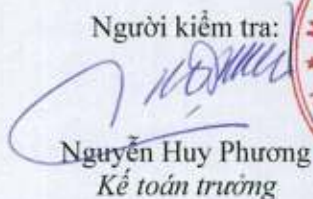 Người kiểm tra:
Nguyễn Huy Phương
Kế toán trưởng